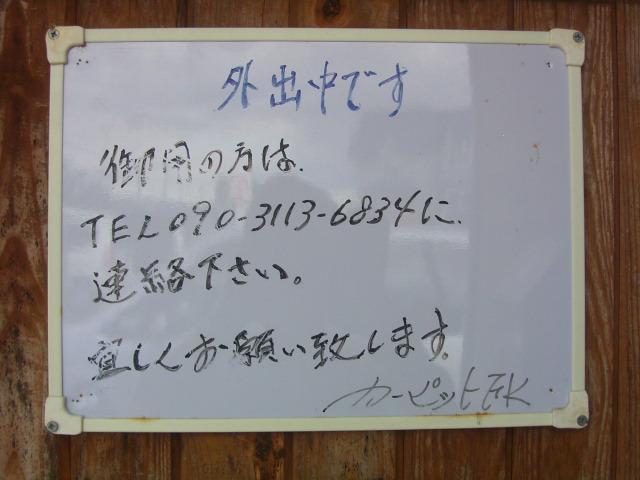 外出中です
御用の方は、
TEL090-3113-6834に、
連絡下さい。
宜しくお願い致します。
カーピットEK